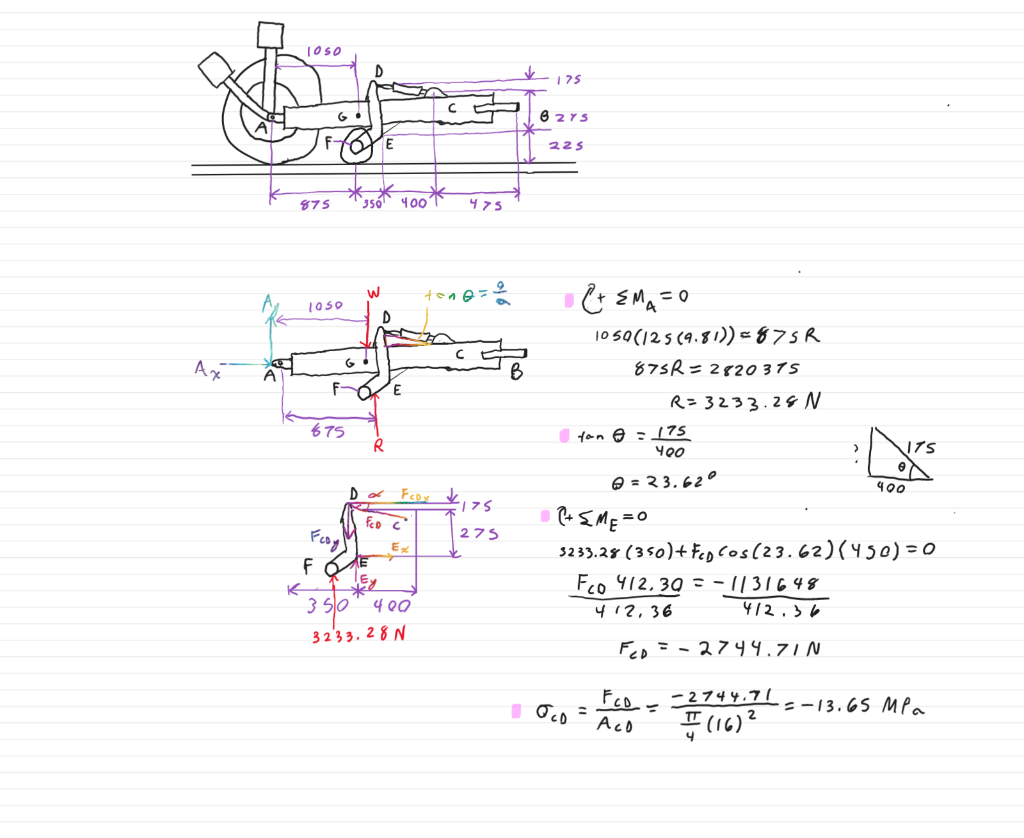 1050
D
175
C
A
G
B 275
F
E
225
875 350 400 475
A
W
tan θ = a/a
1050
D
Ax
A
G
C
B
F
E
875
R
+ ΣM_A = 0
1050(125(9.81)) = 875R
875R = 2820375
R = 3233.28 N
tan θ = 175/400
θ = 23.62°
?
175
θ
400
D α F_CDx
175
F_CD C
F_CDy
275
Ex
F
E
Ey
350 400
3233.28 N
+ ΣM_E = 0
3233.28(350) + F_CD cos(23.62)(450) = 0
F_CD 412.30/412.36 = -1131648/412.36
F_CD = -2744.71 N
σ_CD = F_CD/A_CD = -2744.71/(π/4 (16)²) = -13.65 MPa